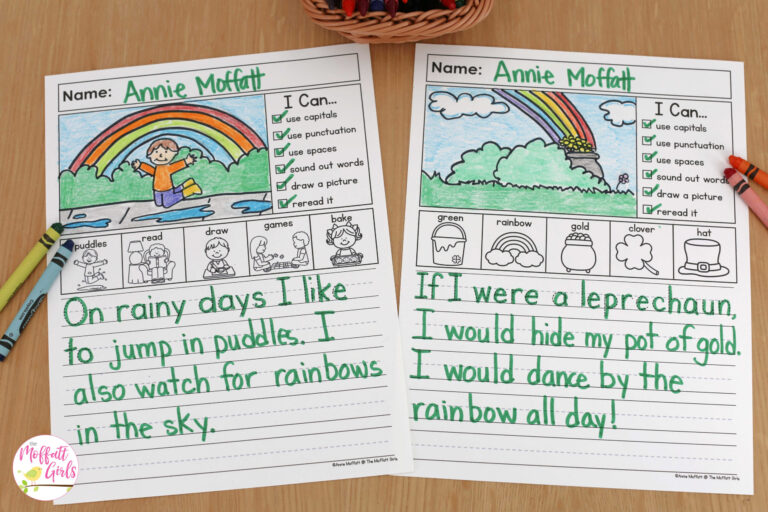 Name: Annie Moffatt
I Can...
use capitals
use punctuation
use spaces
sound out words
draw a picture
reread it
puddles
read
draw
games
bake
On rainy days I like
to jump in puddles. I
also watch for rainbows
in the sky.
©Annie Moffatt @ The Moffatt Girls
Name: Annie Moffatt
I Can...
use capitals
use punctuation
use spaces
sound out words
draw a picture
reread it
green
rainbow
gold
clover
hat
If I were a leprechaun,
I would hide my pot of gold.
I would dance by the
rainbow all day!
©Annie Moffatt @ The Moffatt Girls
The
Moffatt
Girls